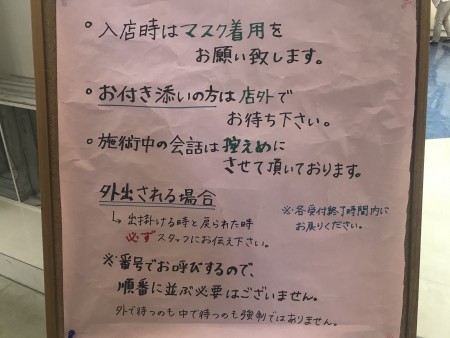 。入店時はマスク着用を
お願い致します。
。お付き添いの方は店外で
お待ち下さい。
。施術中の会話は控えめに
させて頂いております。
外出される場合
↳ 出掛ける時と戻られた時
必ずスタッフにお伝え下さい。
※各受付終了時間内に
お戻りください。
※番号でお呼びするので、
順番に並ぶ必要はございません。
外で待つのも中で待つのも強制ではありません。